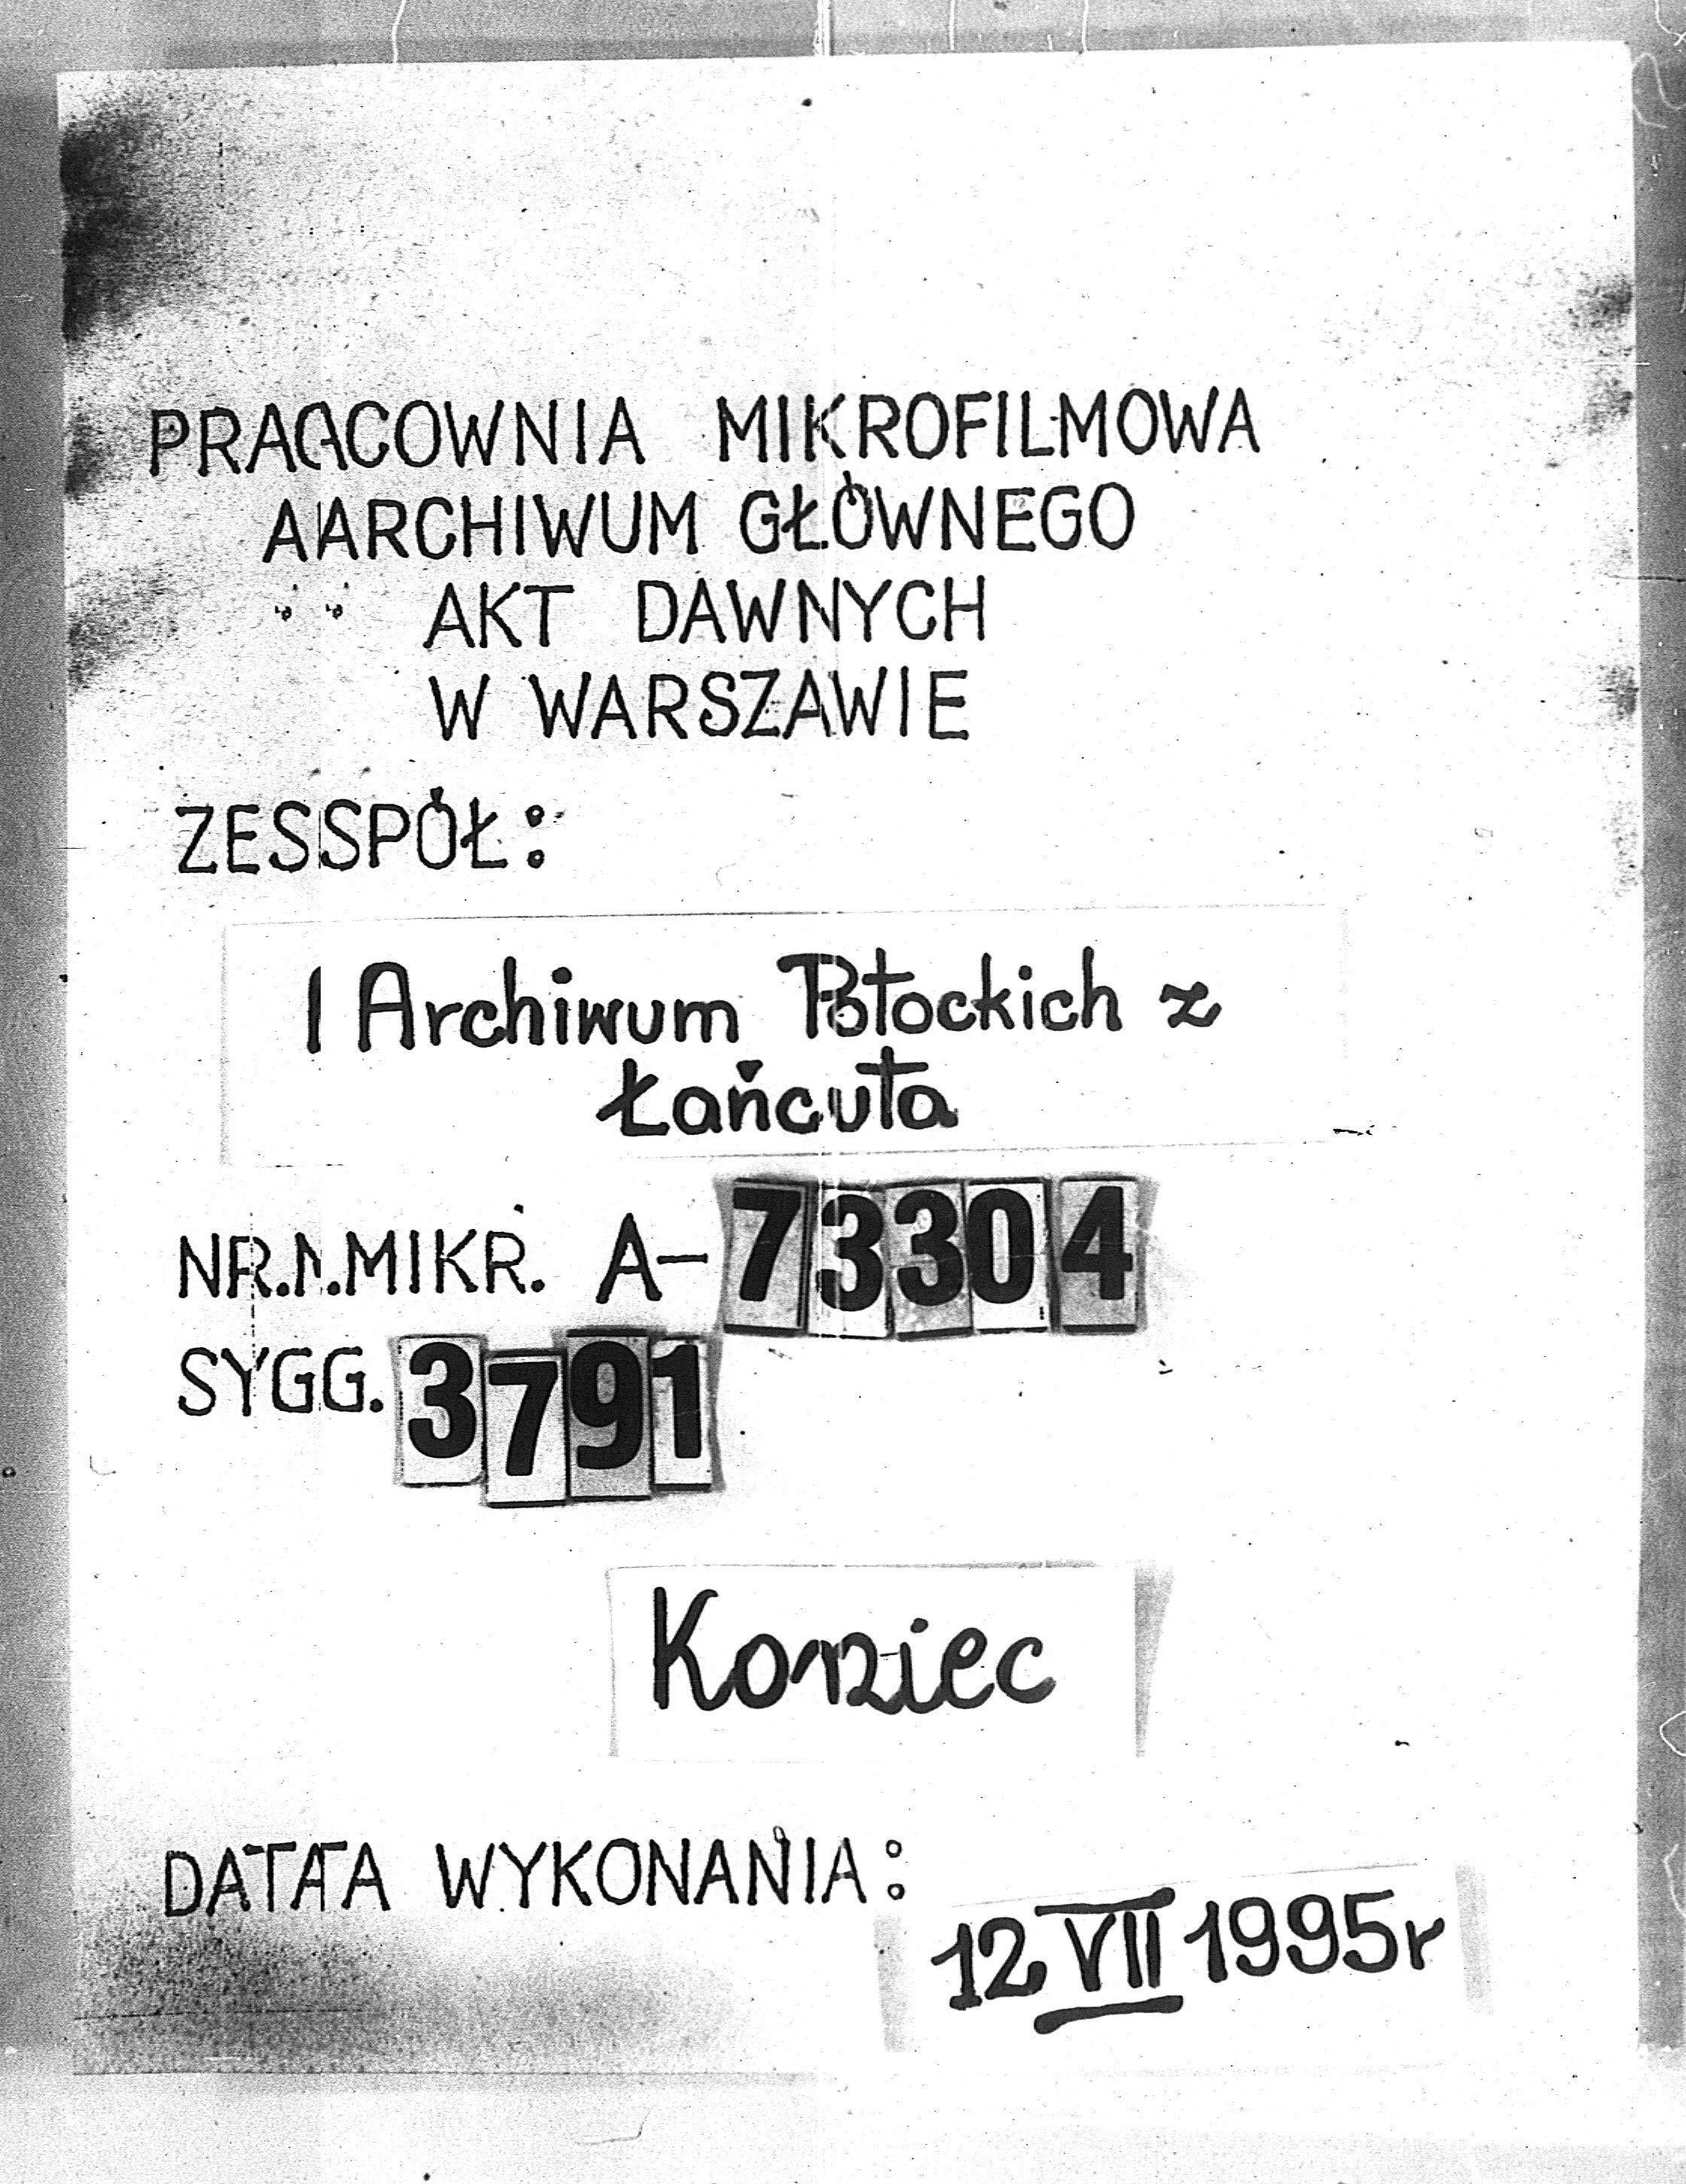 PRAACOWNIA MIKROFILMOWA
AARCHIWUM GŁÓWNEGO
AKT DAWNYCH
W WARSZAWIE
ZESSPÓŁ:
I Archiwum Potockich z
Łańcuta
NR.N.MIKR. A-73304
SYGG. 3791
Koniec
DATATA WYKONANIA:
12 VII 1995r